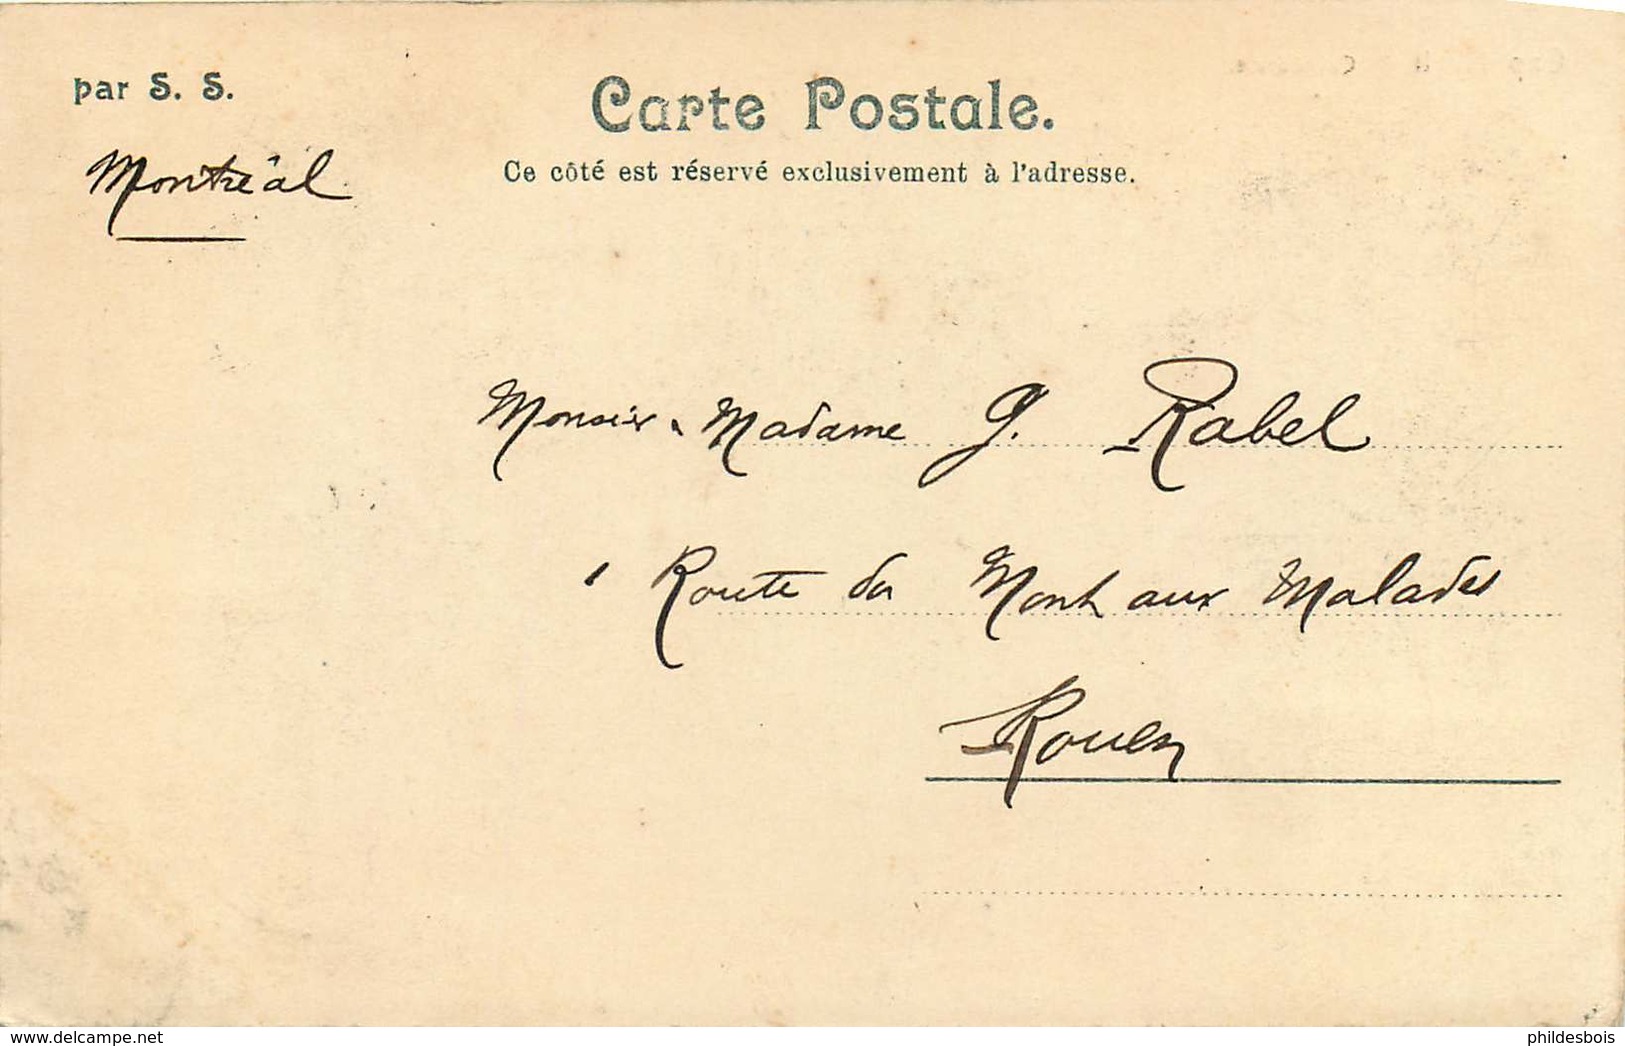 par S. S.
Montréal
Carte Postale.
Ce côté est réservé exclusivement à l'adresse.
Monsieur & Madame G. Rabel
1 Route du Mont aux Malades
Rouen
www.delcampe.net
phildesbois